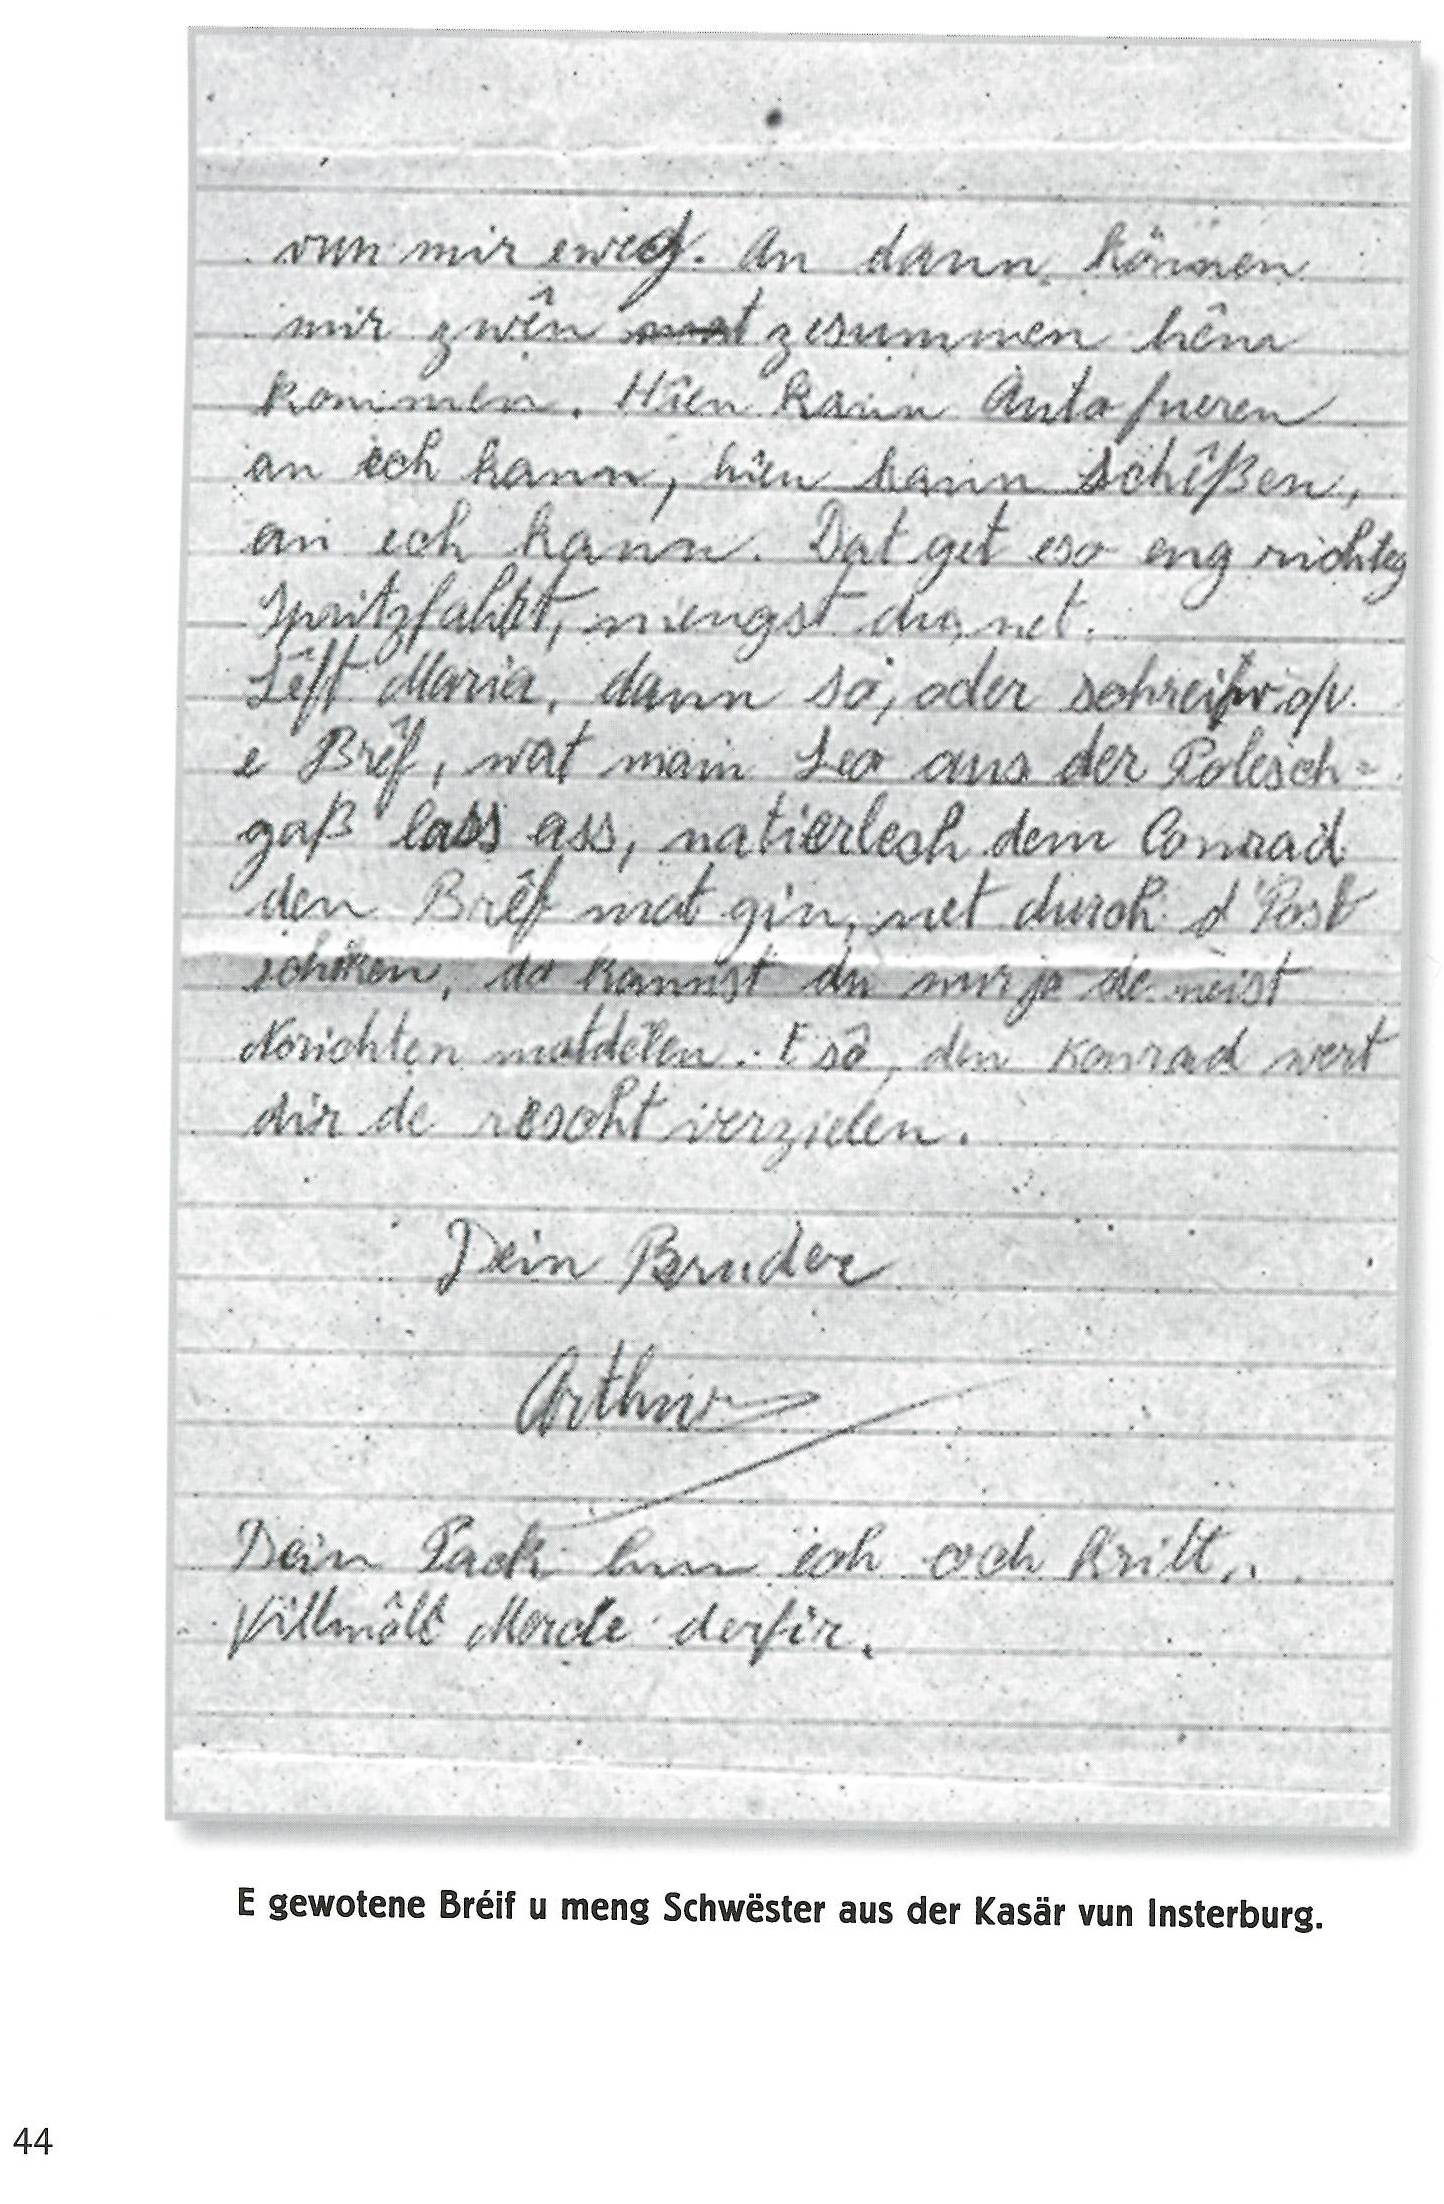 vun mir eweg. An dann können
mir zwên mat zesummen hêm
kommen. Hien kann Auto fueren
an ech kann, hien kann schêßen,
an ech kann. Dat get eso eng richteg
Spritzfahrt, mengst du net.
Lêft Maria, dann so, oder schreiw op
e Brêf, wat mam Leo aus der Polesch=
gaß lass ass, natierlech dem Conrad
den Brêf mat gin, net durch d'Post
schiken, do kannst du mir jo die meist
Norichten matdelen. E sô, den Konrad wert
dir de rescht verzielen.
Dein Bruder
Arthur
Dein Pack hun ech och kritt.
Villmôls Merde derfir.
E gewotene Bréif u meng Schwëster aus der Kasär vun Insterburg.
44